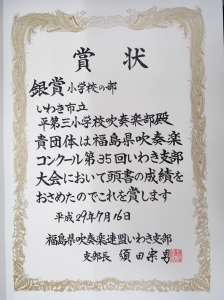 賞状
銀賞 小学校の部
いわき市立
平第三小学校吹奏楽部殿
貴団体は福島県吹奏楽
コンクール第35回いわき支部
大会において頭書の成績を
おさめたのでこれを賞します
平成29年7月16日
福島県吹奏楽連盟いわき支部
支部長 須田宗男